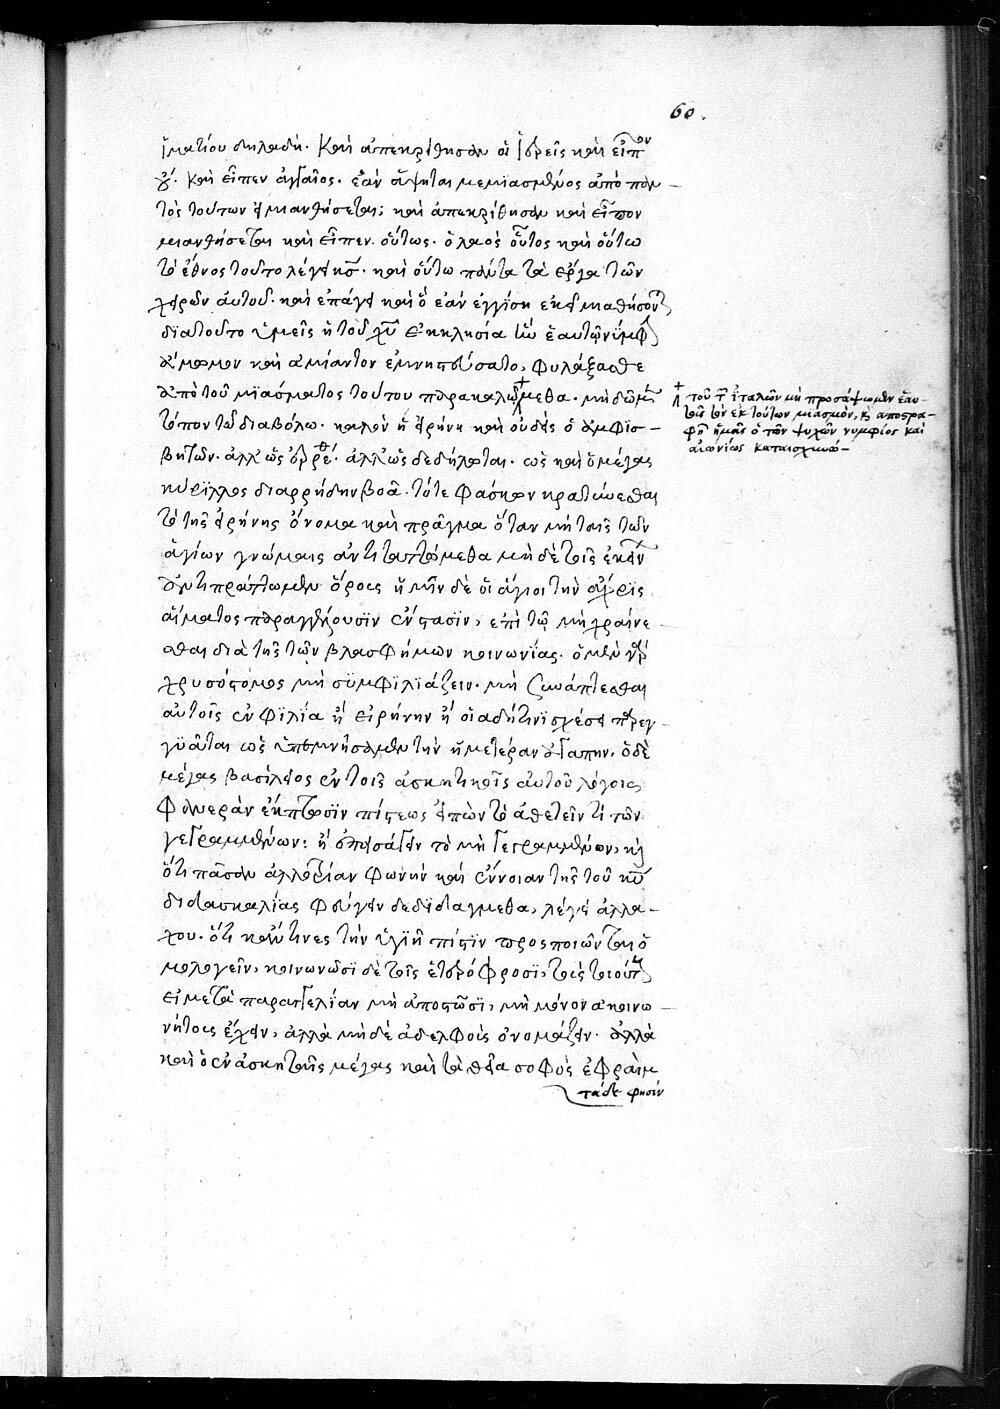 60.
ἱματίου δηλαδή. Καὶ ἀπεκρίθησαν οἱ ἱερεῖς καὶ εἶπον
οὔ. καὶ εἶπεν ἀγγαῖος. ἐὰν ἅψηται μεμϊασμένος ἀπὸ παν
τὸς τούτων εἰ μιανθήσεται; καὶ ἀπεκρίθησαν καὶ εἶπον
μιανθήσεται καὶ εἶπεν. οὕτως. ὁ λαὸς οὗτος καὶ οὕτω
τὸ ἔθνος τοῦτο λέγει κς. καὶ οὕτω πάντα τὰ ἔργα τῶν
χειρῶν αυτοῦ. καὶ ἐπάγει καὶ ὃ ἐὰν ἐγγίση ἐκεῖ μιαθήσον
διατοῦτο ὑμεῖς ἡ τοῦ χυ ἐκκλησία ἣν ἑαυτῶ νύμφ
ἄμωμον καὶ ἀμίαντον ἐμνηστεύσατο, φυλάξασθε
ἀπὸ τοῦ μϊάσματος τούτου παρακαλῶμεθα. μὴ δῶμεν
τόπον τῶ διαβόλω. καλὸν ἡ εἰρήνη καὶ οὐδεὶς ὁ ἀμφισ-
βητῶν. ἀλλ' ὡς ἀλλ' ὡς δεδήλωται. ὡς καὶ ὁ μέγας
κύριλλος διαρρήδην βοᾶ. τότε φάσκων κρατύνεσθαι
τὸ τῆς εἰρήνης ὄνομα καὶ πρᾶγμα ὅταν μὴ ταῖς τῶν
ἁγίων γνώμαις ἀντιταττόμεθα μὴ δὲ τοῖς ἐκείν
ἀντιπράττωμεν ὅροις ἡμῖν δὲ οἱ ἅγιοι τὴν ἄχρϊς
αἵματος παραγγέλουσϊν ἔνστασϊν, ἐπὶ τῶ μὴ χραίνε
σθαι διὰ τῆς τῶν βλασφήμων κοινωνίας. ὁ μὲν γὰρ
χρυσόστομος μὴ συμφϊλϊάζειν. μὴ συνάπτεσθαι
αὐτοῖς ἐν φϊλία ἢ εἰρήνην ἢ οἱαδήτινϊ σχέσει παρεγ-
γυᾶται ὡς ὑπεμνήσαμεν τὴν ἡμετέραν ἀγάπην. ὁ δὲ
μέγας βασίλειος ἐν τοῖς ἀσκητικοῖς αὐτοῦ λόγοις
φανερὰν ἔκπτωσϊν πίστεως εἰπὼν τὸ ἀθετεῖν τὶ τῶν
γεγραμμένων: ἢ ἐπεισάγειν τὸ μὴ γεγραμμένον, καὶ
ὅτι πᾶσαν ἀλλοτρίαν φωνὴν καὶ ἔννοιαν τῆς τοῦ κυ
διδασκαλίας φεύγειν δεδϊδάγμεθα, λέγει ἀλλα-
χοῦ. ὅτι κἄν τινες τὴν ὑγιῆ πίστϊν προσποιῶνται ὁ
μολογεῖν, κοινωνῶσι δὲ τοῖς ἑτερόφροσϊ, τοὺς τοιούτ
εἰ μετὰ παραγγελίαν μὴ ἀποστῶσϊ, μὴ μόνον ἀκοινω
νήτους ἔχειν, ἀλλὰ μὴ δὲ ἀδελφοὺς ὀνομάζειν. ἀλλὰ
καὶ ὁ ἐν ἀσκηταῖς μέγας καὶ τὰ θεῖα σοφὸς ἐφραὶμ
τάδε φησίν
τοῦ τ ἰταλῶν μὴ προσάψωμεν ἑαυ-
τοῖς τὸν ἐκ τούτων μιασμὸν, κ ἀποστρα-
φῆ ἡμᾶς ὁ τῶν ψυχῶν νυμφίος καὶ
αἰωνίως καταισχυνθ-